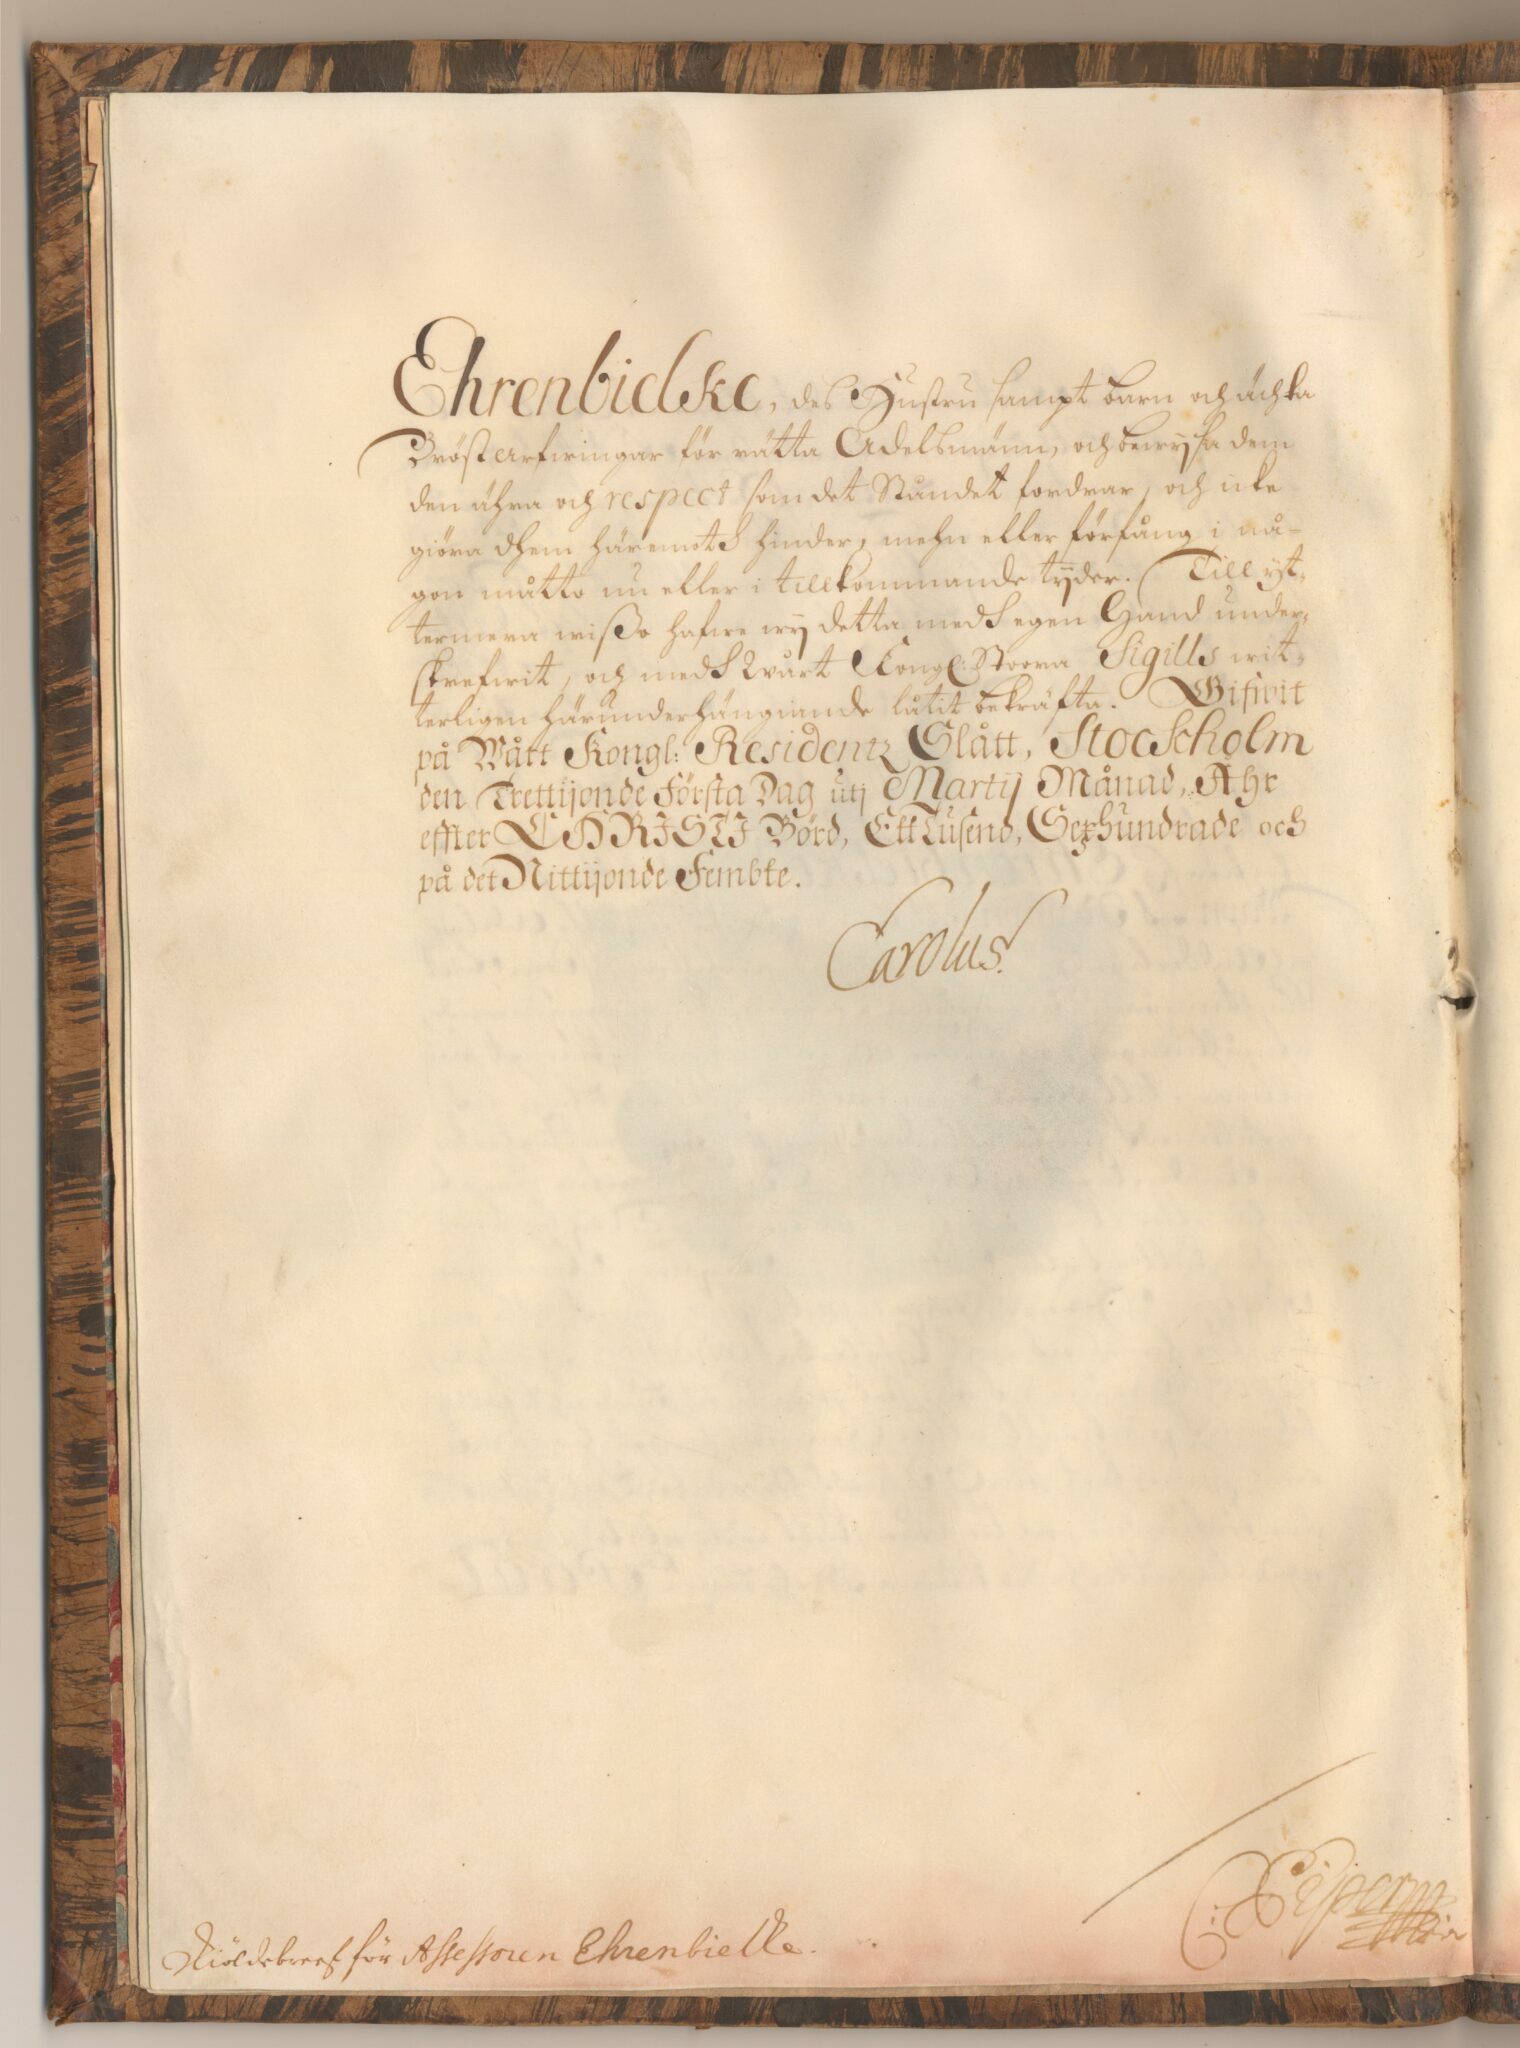 Ehrenbielke, des Hustru sampt barn och ächta
Bröst Arfwingar för rätta Adelsmänn, och bewysa dem
den ähra och respect som det Ståndet fordrar, och icke
giöra dhem häremoth hinder, mehn eller förfång i nå-
gon måtto nu eller i tillkommande tyder. Till yt-
termera wisso hafwe wij detta medh egen Hand under-
skrefwit, och medh Wårt Kongl: Stoora Sigills wit-
terligen härunderhängiande låtit bekräfta. Gifwit
på Wårt Kongl: Residentz Slått, Stockholm
den Trettijonde Första Dag utj Martij Månad, Åhr
effter CHRISTI Börd, Ett Tusend, Sexhundrade och
på det Nittijonde Fembte.
Carolus.
Skiöldebreef för Assessoren Ehrenbielke.
C Piper